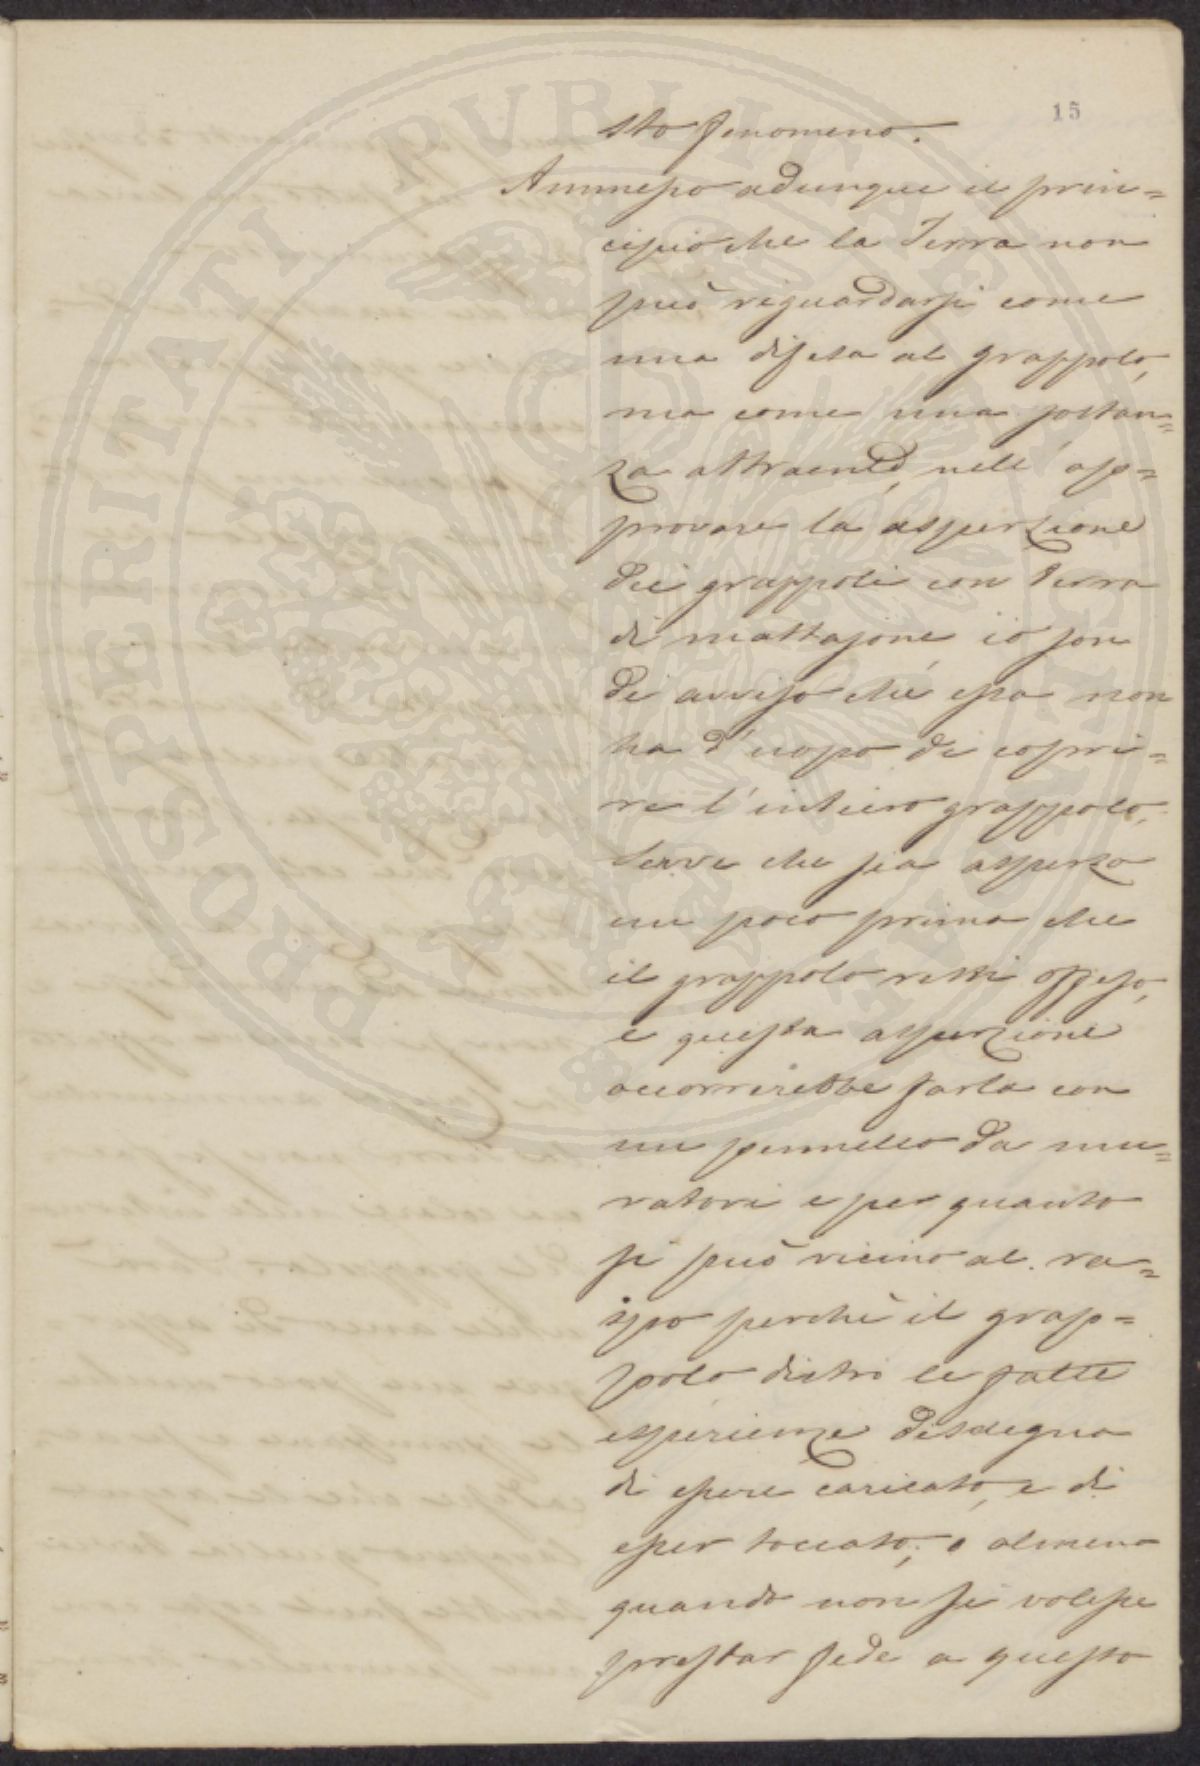 15
sto fenomeno.
Ammesso adunque il prin=
cipio che la Terra non
può riguardarsi come
una difesa al grappolo,
ma come una sostan=
za attraente, nell' ap=
provare la asperzione
dei grappoli con Terra
di mattajone io son
di avviso che essa non
ha d'uopo di copri=
re l'intiero grappolo,
serve che sia asperzo
un poco prima che
il grappolo resti offeso,
e questa asperzione
occorrerebbe farla con
un pennello da mu=
ratori e per quanto
si può vicino al ra=
spo perchè il grap=
polo dietro le fatte
esperienze disdegna
di essere caricato, e di
esser toccato; o almeno
quando non si volesse
prestar fede a questo
PROSPERITATI PVBLICAE AVGENDAE